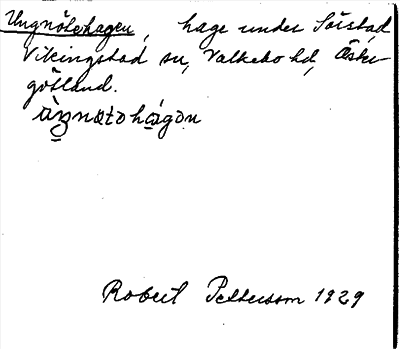 Ungnötehagen, hage under Sörstad,
Vikingstad sn, Valkebo hd, Öster-
götland.
Robert Pettersson 1929